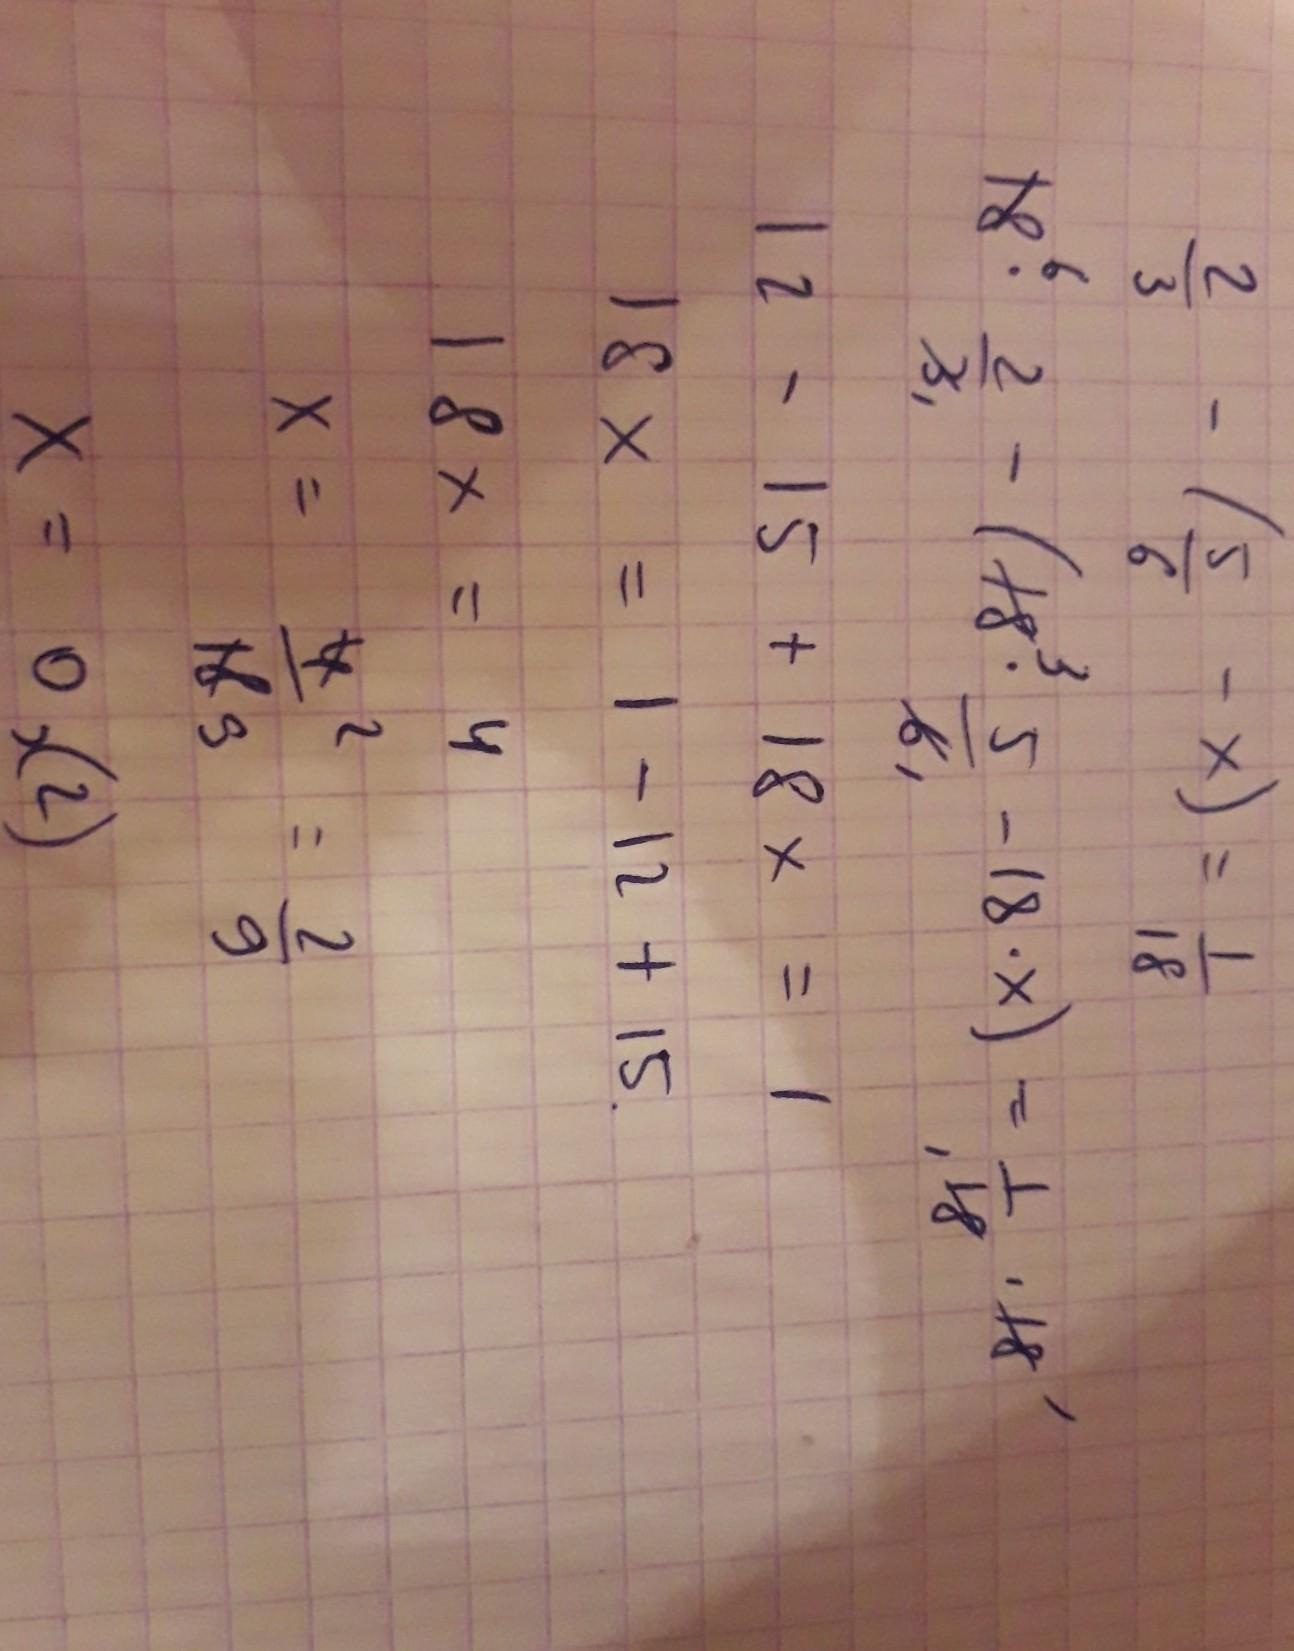 2/3 - (5/6 - x) = 1/18
18⁶ · 2/3₁ - (18³ · 5/6₁ - 18 · x) = 1/₁18 · 18¹
12 - 15 + 18x = 1
18x = 1 - 12 + 15.
18x = 4
x = 4²/18₉ = 2/9
x = 0,(2)